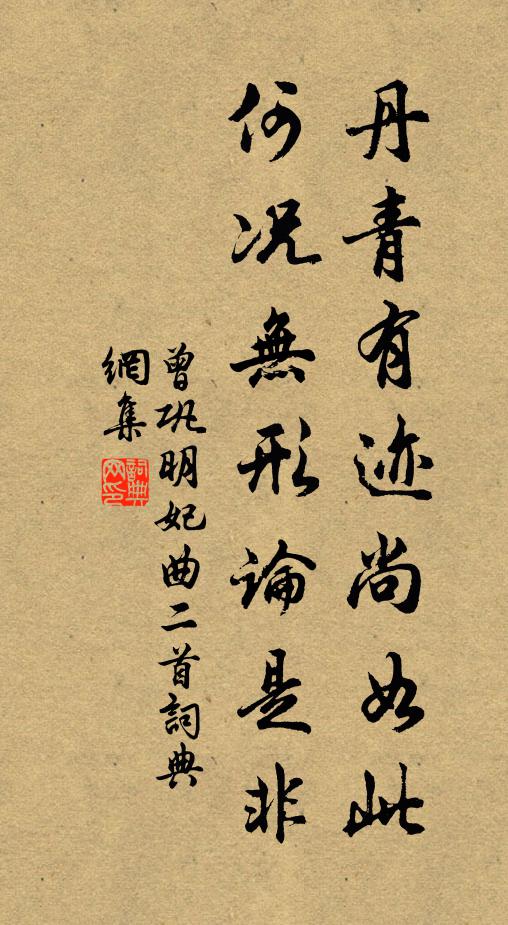 丹青有迹尚如此
何况無形論是非
曾巩明妃曲二首詞典
網集
詞典
网印